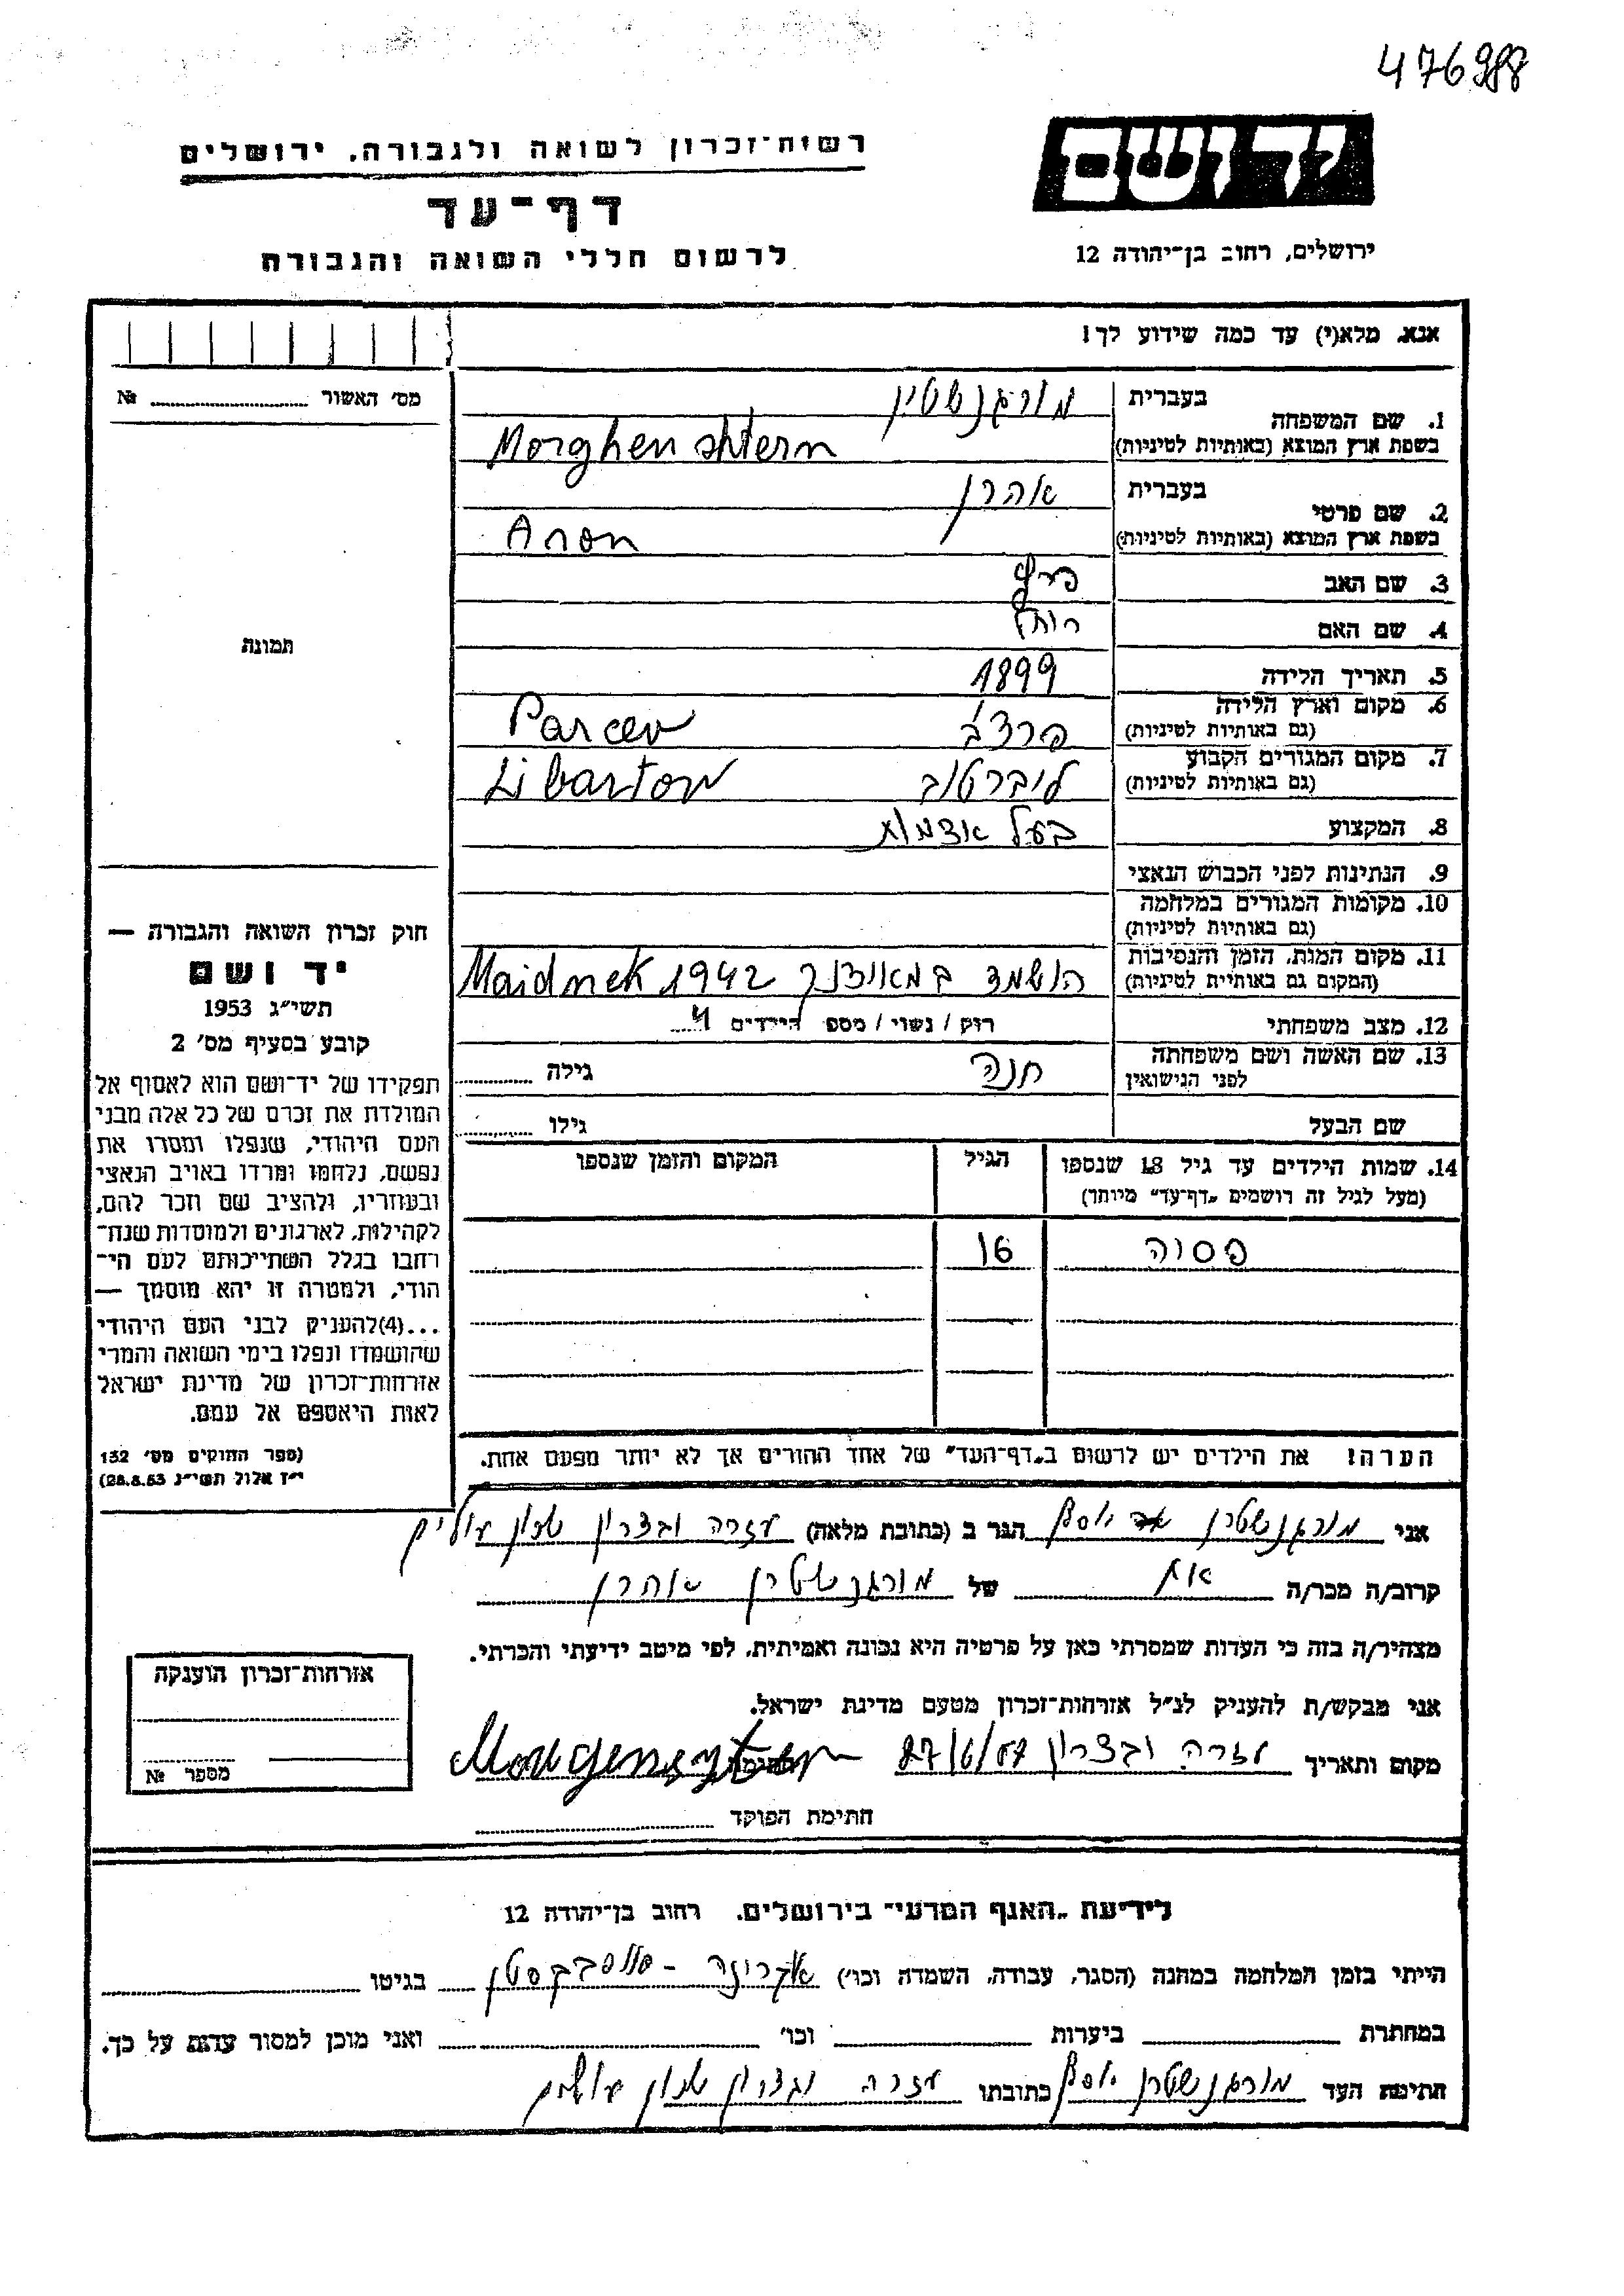 476988
יד ושם
רשות־זכרון לשואה ולגבורה, ירושלים
דף־עד
לרשום חללי השואה והגבורה
ירושלים, רחוב בן־יהודה 12
אנא, מלא(י) עד כמה שידוע לך!
מס׳ האשור № 
1. שם המשפחה בעברית מורגנשטין
בשפת ארץ המוצא (באותיות לטיניות) Morghenshtern
2. שם פרטי בעברית אהרן
בשפת ארץ המוצא (באותיות לטיניות) Aron
3. שם האב
4. שם האם
5. תאריך הלידה 1899
6. מקום וארץ הלידה (גם באותיות לטיניות) פרצ'ב Parcev
7. מקום המגורים הקבוע (גם באותיות לטיניות) ליברטוב Libartow
8. המקצוע בעל
9. הנתינות לפני הכבוש הנאצי
10. מקומות המגורים במלחמה (גם באותיות לטיניות)
11. מקום המות, הזמן והנסיבות (המקום גם באותיות לטיניות) הושמד Maidnek 1942
12. מצב משפחתי רווק / נשוי / מספר הילדים 4
13. שם האשה ושם משפחתה לפני הנישואין חנה גילה
שם הבעל גילו
14. שמות הילדים עד גיל 18 שנספו הגיל המקום והזמן שנספו
(מעל לגיל זה רושמים „דף־עד" מיוחד)
פסוה 16
הערה! את הילדים יש לרשום ב„דף־העד" של אחד ההורים אך לא יותר מפעם אחת.
תמונה
חוק זכרון השואה והגבורה —
יד ושם
תשי״ג 1953
קובע בסעיף מס׳ 2
תפקידו של יד־ושם הוא לאסוף אל
המולדת את זכרם של כל אלה מבני
העם היהודי, שנפלו ומסרו את
נפשם, נלחמו ומרדו באויב הנאצי
ובעוזריו, ולהציב שם וזכר להם,
לקהילות, לארגונים ולמוסדות שנח־
רחבו בגלל השתייכותם לעם הי־
הודי, ולמטרה זו יהא מוסמך —
...(4)להעניק לבני העם היהודי
שהושמדו ונפלו בימי השואה והמרי
אזרחות־זכרון של מדינת ישראל
לאות היאספם אל עמם.
(ספר החוקים מס׳ 132
י״ז אלול תשי״ג 28.8.53)
אני מורגנשטרן יוסף הגר ב (כתובת מלאה) עזרה ובצרון
קרוב/ה מכר/ה של מורגנשטרן אהרן
מצהיר/ה בזה כי העדות שמסרתי כאן על פרטיה היא נכונה ואמיתית, לפי מיטב ידיעתי והכרתי.
אני מבקש/ת להעניק לנ״ל אזרחות־זכרון מטעם מדינת ישראל.
מקום ותאריך עזרה ובצרון חתימה
חתימת הפוקד
אזרחות־זכרון הוענקה
מספר №
לידיעת „האגף המדעי" בירושלים, רחוב בן־יהודה 12
הייתי בזמן המלחמה במחנה (הסגר, עבודה, השמדה וכו׳) בגיטו
במחתרת ביערות וכו׳ ואני מוכן למסור עדות על כך.
חתימת העד מורגנשטרן יוסף כתובתו עזרה ובצרון